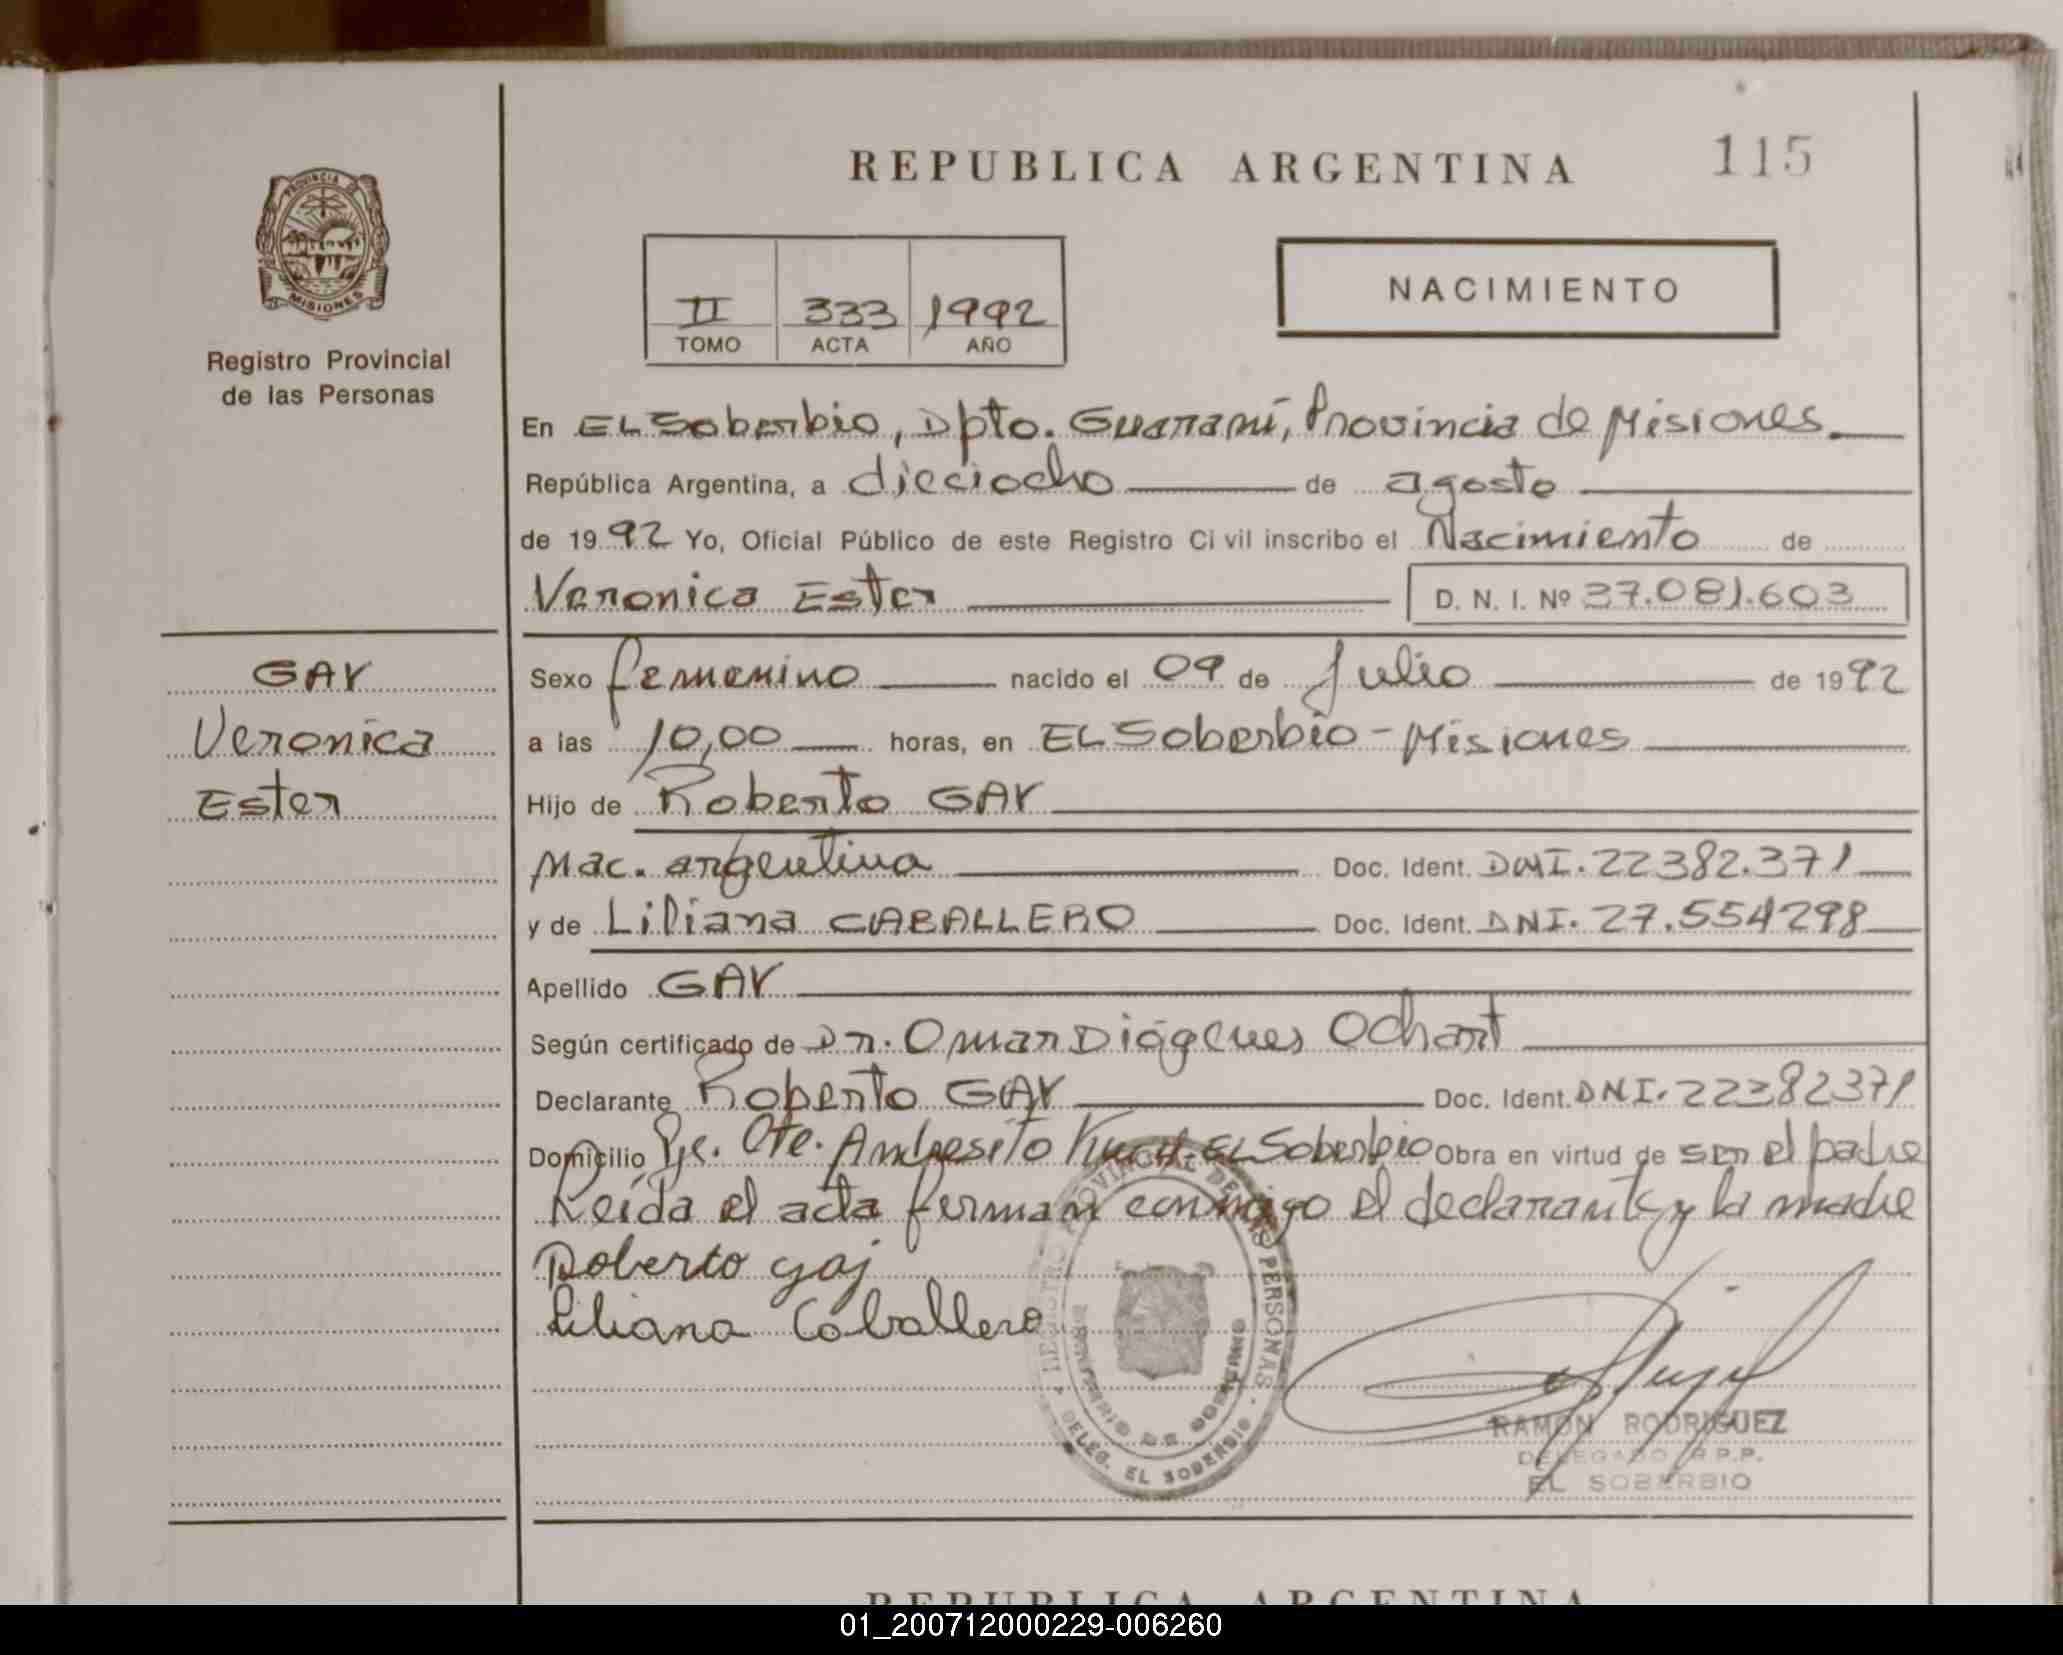 REPUBLICA ARGENTINA
115
PROVINCIA DE
MISIONES
Registro Provincial
de las Personas
II 333 1992
TOMO ACTA AÑO
NACIMIENTO
En EL Soberbio, Dpto. Guaraní, Provincia de Misiones
República Argentina, a dieciocho de agosto
de 1992 Yo, Oficial Público de este Registro Civil inscribo el Nacimiento de
Veronica Ester D. N. I. Nº 37.081.603
GAY
Veronica
Ester
Sexo femenino nacido el 09 de Julio de 1992
a las 10,00 horas, en EL Soberbio - Misiones
Hijo de Roberto GAY
Nac. argentina Doc. Ident. DNI. 22382.371
y de Liliana CABALLERO Doc. Ident. DNI. 27.554298
Apellido GAY
Según certificado de Dr. Omar Diógenes Ochart
Declarante Roberto GAY Doc. Ident. DNI. 22382371
Domicilio Pje. Cte. Andresito EL Soberbio Obra en virtud de ser el padre
Leída el acta firman conmigo el declarante y la madre
Roberto gaj
Liliana Caballero
REGISTRO PROVINCIAL DE LAS PERSONAS
MINISTERIO DE GOBIERNO
DELEG. EL SOBERBIO
RAMON RODRIGUEZ
DELEGADO R.P.P.
EL SOBERBIO
REPUBLICA ARGENTINA
01_200712000229-006260